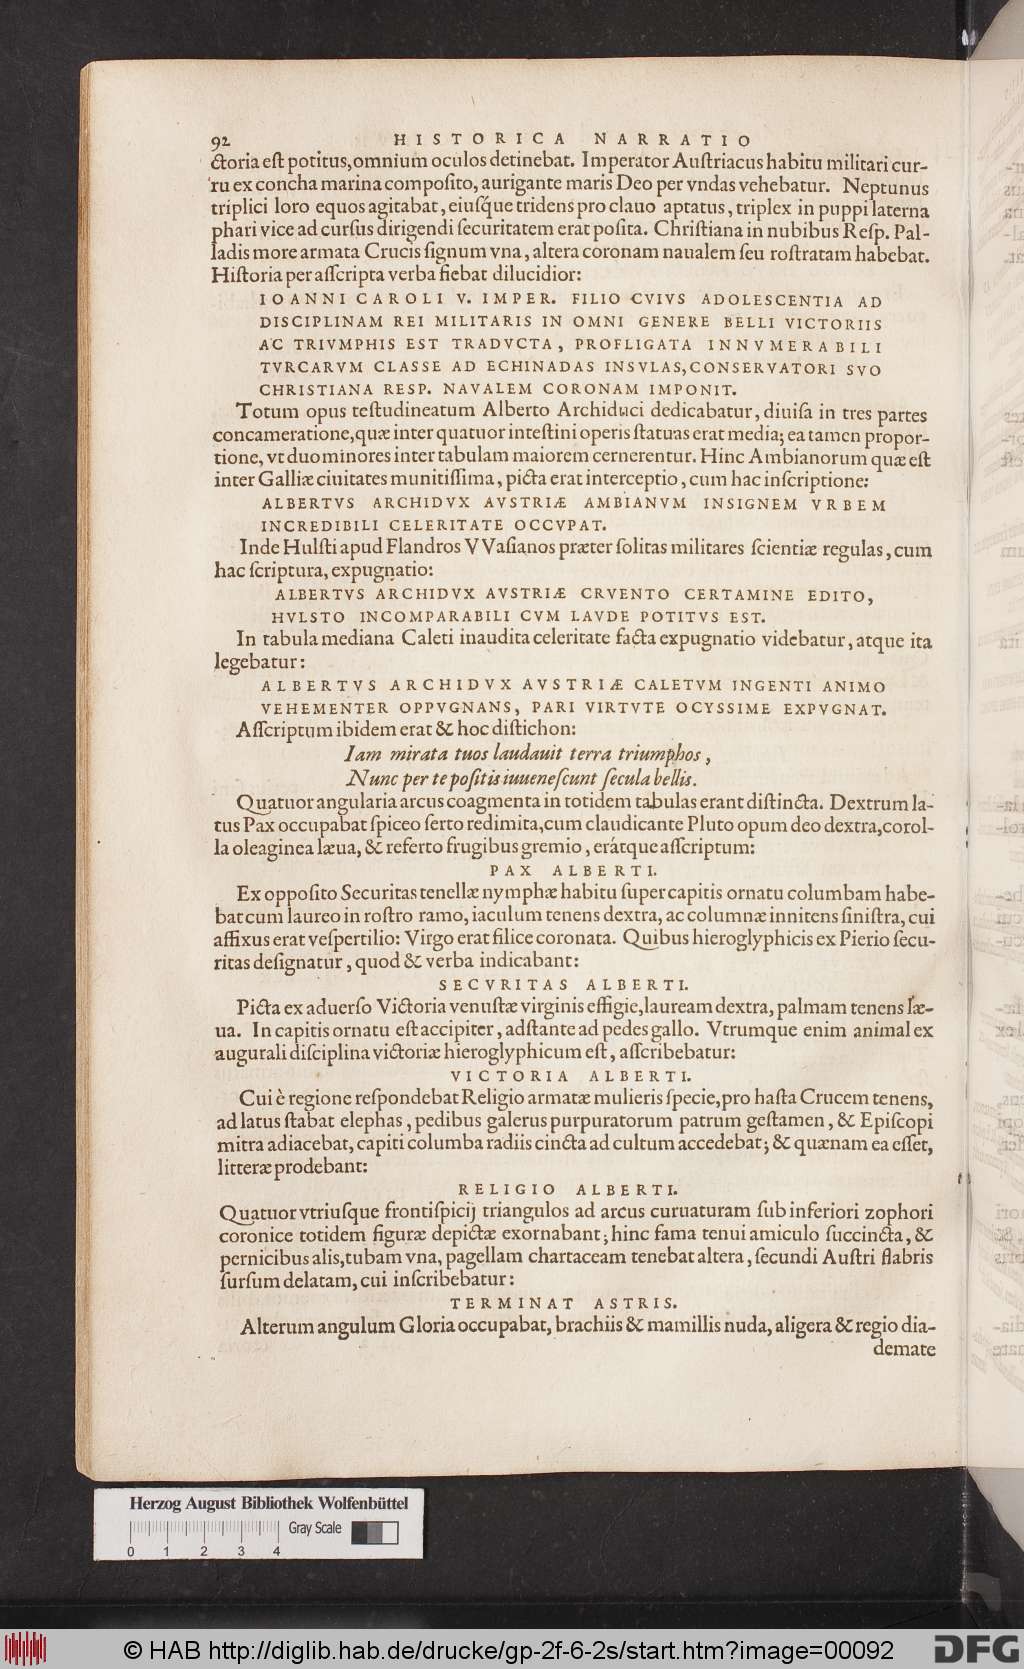 92 HISTORICA NARRATIO
ctoria eſt potitus, omnium oculos detinebat. Imperator Auſtriacus habitu militari cur-
ru ex concha marina compoſito, aurigante maris Deo per vndas vehebatur. Neptunus
triplici loro equos agitabat, eiuſq́ue tridens pro clauo aptatus, triplex in puppi laterna
phari vice ad curſus dirigendi ſecuritatem erat poſita. Chriſtiana in nubibus Reſp. Pal-
ladis more armata Crucis ſignum vna, altera coronam naualem ſeu roſtratam habebat.
Hiſtoria per aſſcripta verba fiebat dilucidior:
IOANNI CAROLI V. IMPER. FILIO CVIVS ADOLESCENTIA AD
DISCIPLINAM REI MILITARIS IN OMNI GENERE BELLI VICTORIIS
AC TRIVMPHIS EST TRADVCTA, PROFLIGATA INNVMERABILI
TVRCARVM CLASSE AD ECHINADAS INSVLAS, CONSERVATORI SVO
CHRISTIANA RESP. NAVALEM CORONAM IMPONIT.
Totum opus teſtudineatum Alberto Archiduci dedicabatur, diuiſa in tres partes
concameratione, quæ inter quatuor inteſtini operis ſtatuas erat media; ea tamen propor-
tione, vt duo minores inter tabulam maiorem cernerentur. Hinc Ambianorum quæ eſt
inter Galliæ ciuitates munitiſſima, picta erat interceptio, cum hac inſcriptione:
ALBERTVS ARCHIDVX AVSTRIÆ AMBIANVM INSIGNEM VRBEM
INCREDIBILI CELERITATE OCCVPAT.
Inde Hulſti apud Flandros VVaſianos præter ſolitas militares ſcientiæ regulas, cum
hac ſcriptura, expugnatio:
ALBERTVS ARCHIDVX AVSTRIÆ CRVENTO CERTAMINE EDITO,
HVLSTO INCOMPARABILI CVM LAVDE POTITVS EST.
In tabula mediana Caleti inaudita celeritate facta expugnatio videbatur, atque ita
legebatur:
ALBERTVS ARCHIDVX AVSTRIÆ CALETVM INGENTI ANIMO
VEHEMENTER OPPVGNANS, PARI VIRTVTE OCYSSIME EXPVGNAT.
Aſſcriptum ibidem erat & hoc diſtichon:
Iam mirata tuos laudauit terra triumphos,
Nunc per te poſitis iuueneſcunt ſecula bellis.
Quatuor angularia arcus coagmenta in totidem tabulas erant diſtincta. Dextrum la-
tus Pax occupabat ſpiceo ſerto redimita, cum claudicante Pluto opum deo dextra, corol-
la oleaginea læua, & referto frugibus gremio, erátque aſſcriptum:
PAX ALBERTI.
Ex oppoſito Securitas tenellæ nymphæ habitu ſuper capitis ornatu columbam habe-
bat cum laureo in roſtro ramo, iaculum tenens dextra, ac columnæ innitens ſiniſtra, cui
affixus erat veſpertilio: Virgo erat filice coronata. Quibus hieroglyphicis ex Pierio ſecu-
ritas deſignatur, quod & verba indicabant:
SECVRITAS ALBERTI.
Picta ex aduerſo Victoria venuſtæ virginis effigie, lauream dextra, palmam tenens læ-
ua. In capitis ornatu eſt accipiter, adſtante ad pedes gallo. Vtrumque enim animal ex
augurali diſciplina victoriæ hieroglyphicum eſt, aſſcribebatur:
VICTORIA ALBERTI.
Cui è regione reſpondebat Religio armatæ mulieris ſpecie, pro haſta Crucem tenens,
ad latus ſtabat elephas, pedibus galerus purpuratorum patrum geſtamen, & Epiſcopi
mitra adiacebat, capiti columba radiis cincta ad cultum accedebat; & quænam ea eſſet,
litteræ prodebant:
RELIGIO ALBERTI.
Quatuor vtriuſque frontiſpicij triangulos ad arcus curuaturam ſub inferiori zophori
coronice totidem figuræ depictæ exornabant; hinc fama tenui amiculo ſuccincta, &
pernicibus alis, tubam vna, pagellam chartaceam tenebat altera, ſecundi Auſtri flabris
ſurſum delatam, cui inſcribebatur:
TERMINAT ASTRIS.
Alterum angulum Gloria occupabat, brachiis & mamillis nuda, aligera & regio dia-
demate
Herzog August Bibliothek Wolfenbüttel
Gray Scale
0 1 2 3 4
© HAB http://diglib.hab.de/drucke/gp-2f-6-2s/start.htm?image=00092
DFG